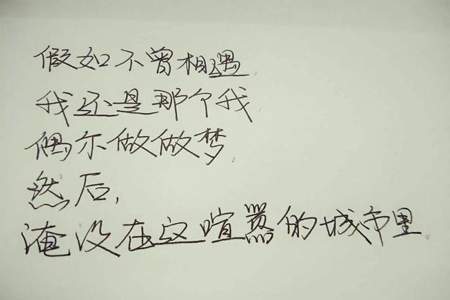 假如不曾相遇
我还是那个我
偶尔做做梦
然后,
淹没在这喧嚣的城市里